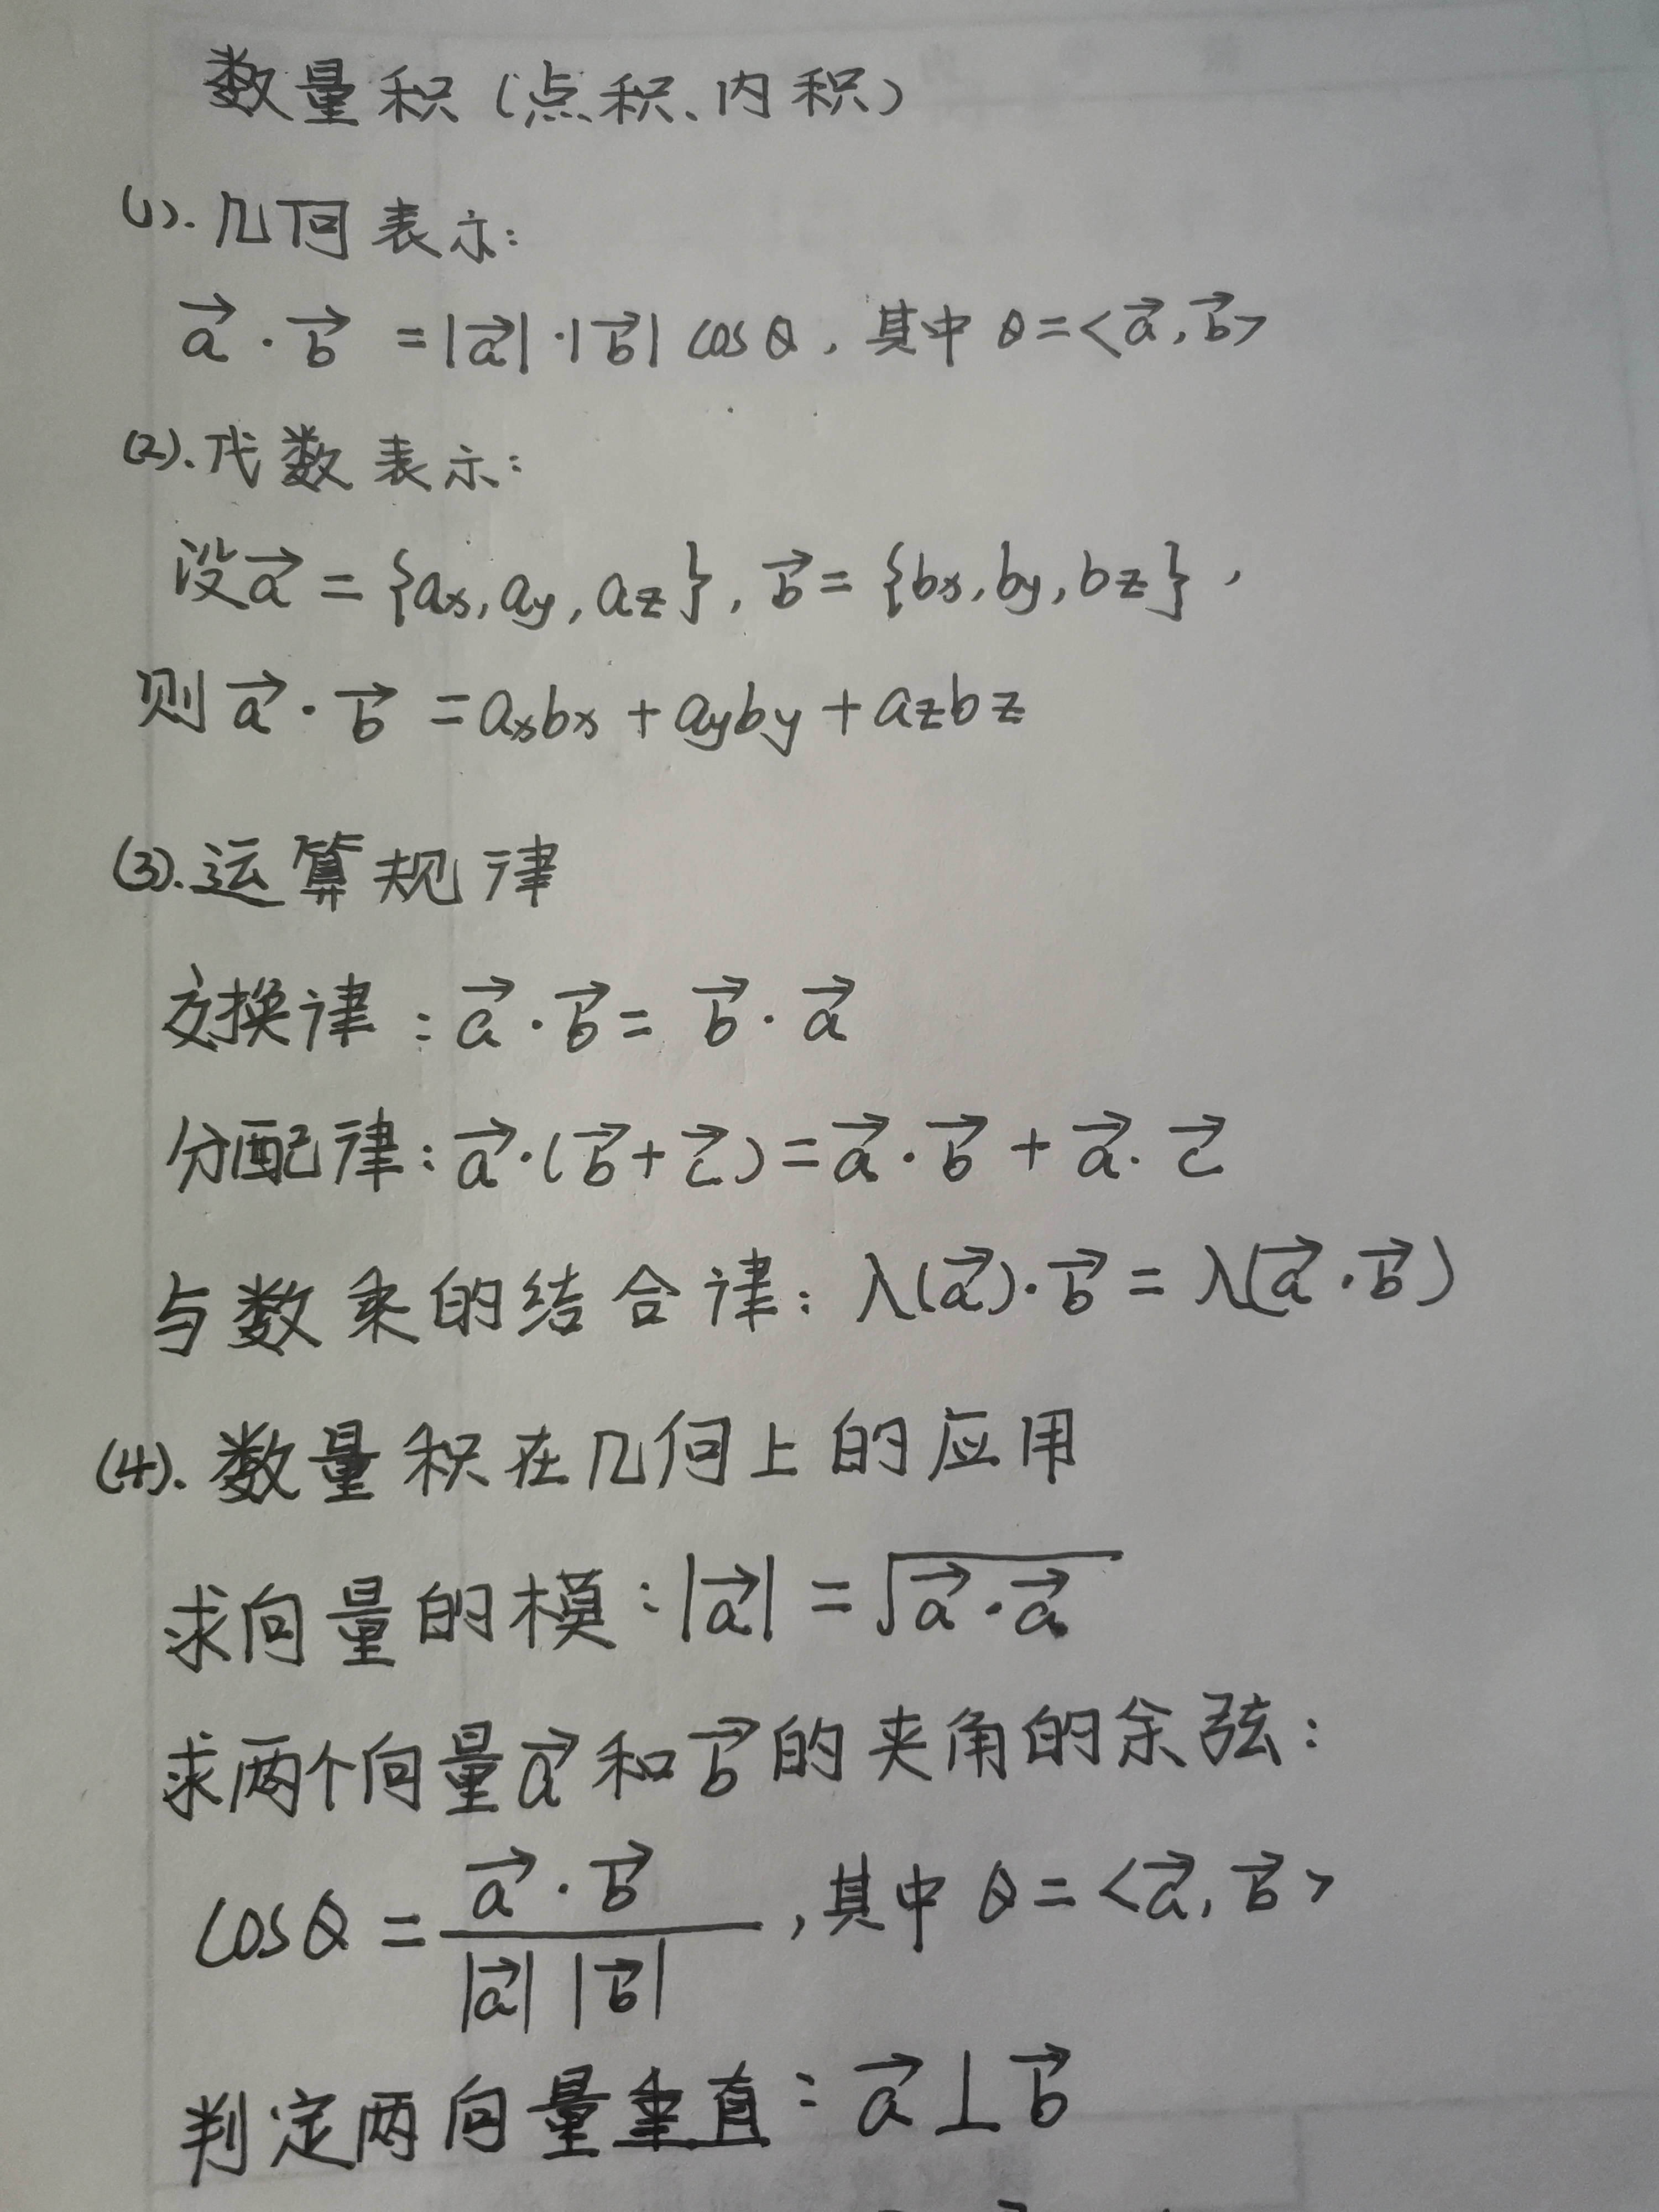 数量积(点积、内积)
(1).几何表示:
$\vec{a}\cdot\vec{b}=|\vec{a}|\cdot|\vec{b}|\cos\theta$,其中$\theta=<\vec{a},\vec{b}>$
(2).代数表示:
设$\vec{a}=\{a_x,a_y,a_z\}$,$\vec{b}=\{b_x,b_y,b_z\}$,
则$\vec{a}\cdot\vec{b}=a_xb_x+a_yb_y+a_zb_z$
(3).运算规律
交换律:$\vec{a}\cdot\vec{b}=\vec{b}\cdot\vec{a}$
分配律:$\vec{a}\cdot(\vec{b}+\vec{c})=\vec{a}\cdot\vec{b}+\vec{a}\cdot\vec{c}$
与数乘的结合律:$\lambda(\vec{a})\cdot\vec{b}=\lambda(\vec{a}\cdot\vec{b})$
(4).数量积在几何上的应用
求向量的模:$|\vec{a}|=\sqrt{\vec{a}\cdot\vec{a}}$
求两个向量$\vec{a}$和$\vec{b}$的夹角的余弦:
$\cos\theta=\frac{\vec{a}\cdot\vec{b}}{|\vec{a}||\vec{b}|}$,其中$\theta=<\vec{a},\vec{b}>$
判定两向量垂直:$\vec{a}\perp\vec{b}$